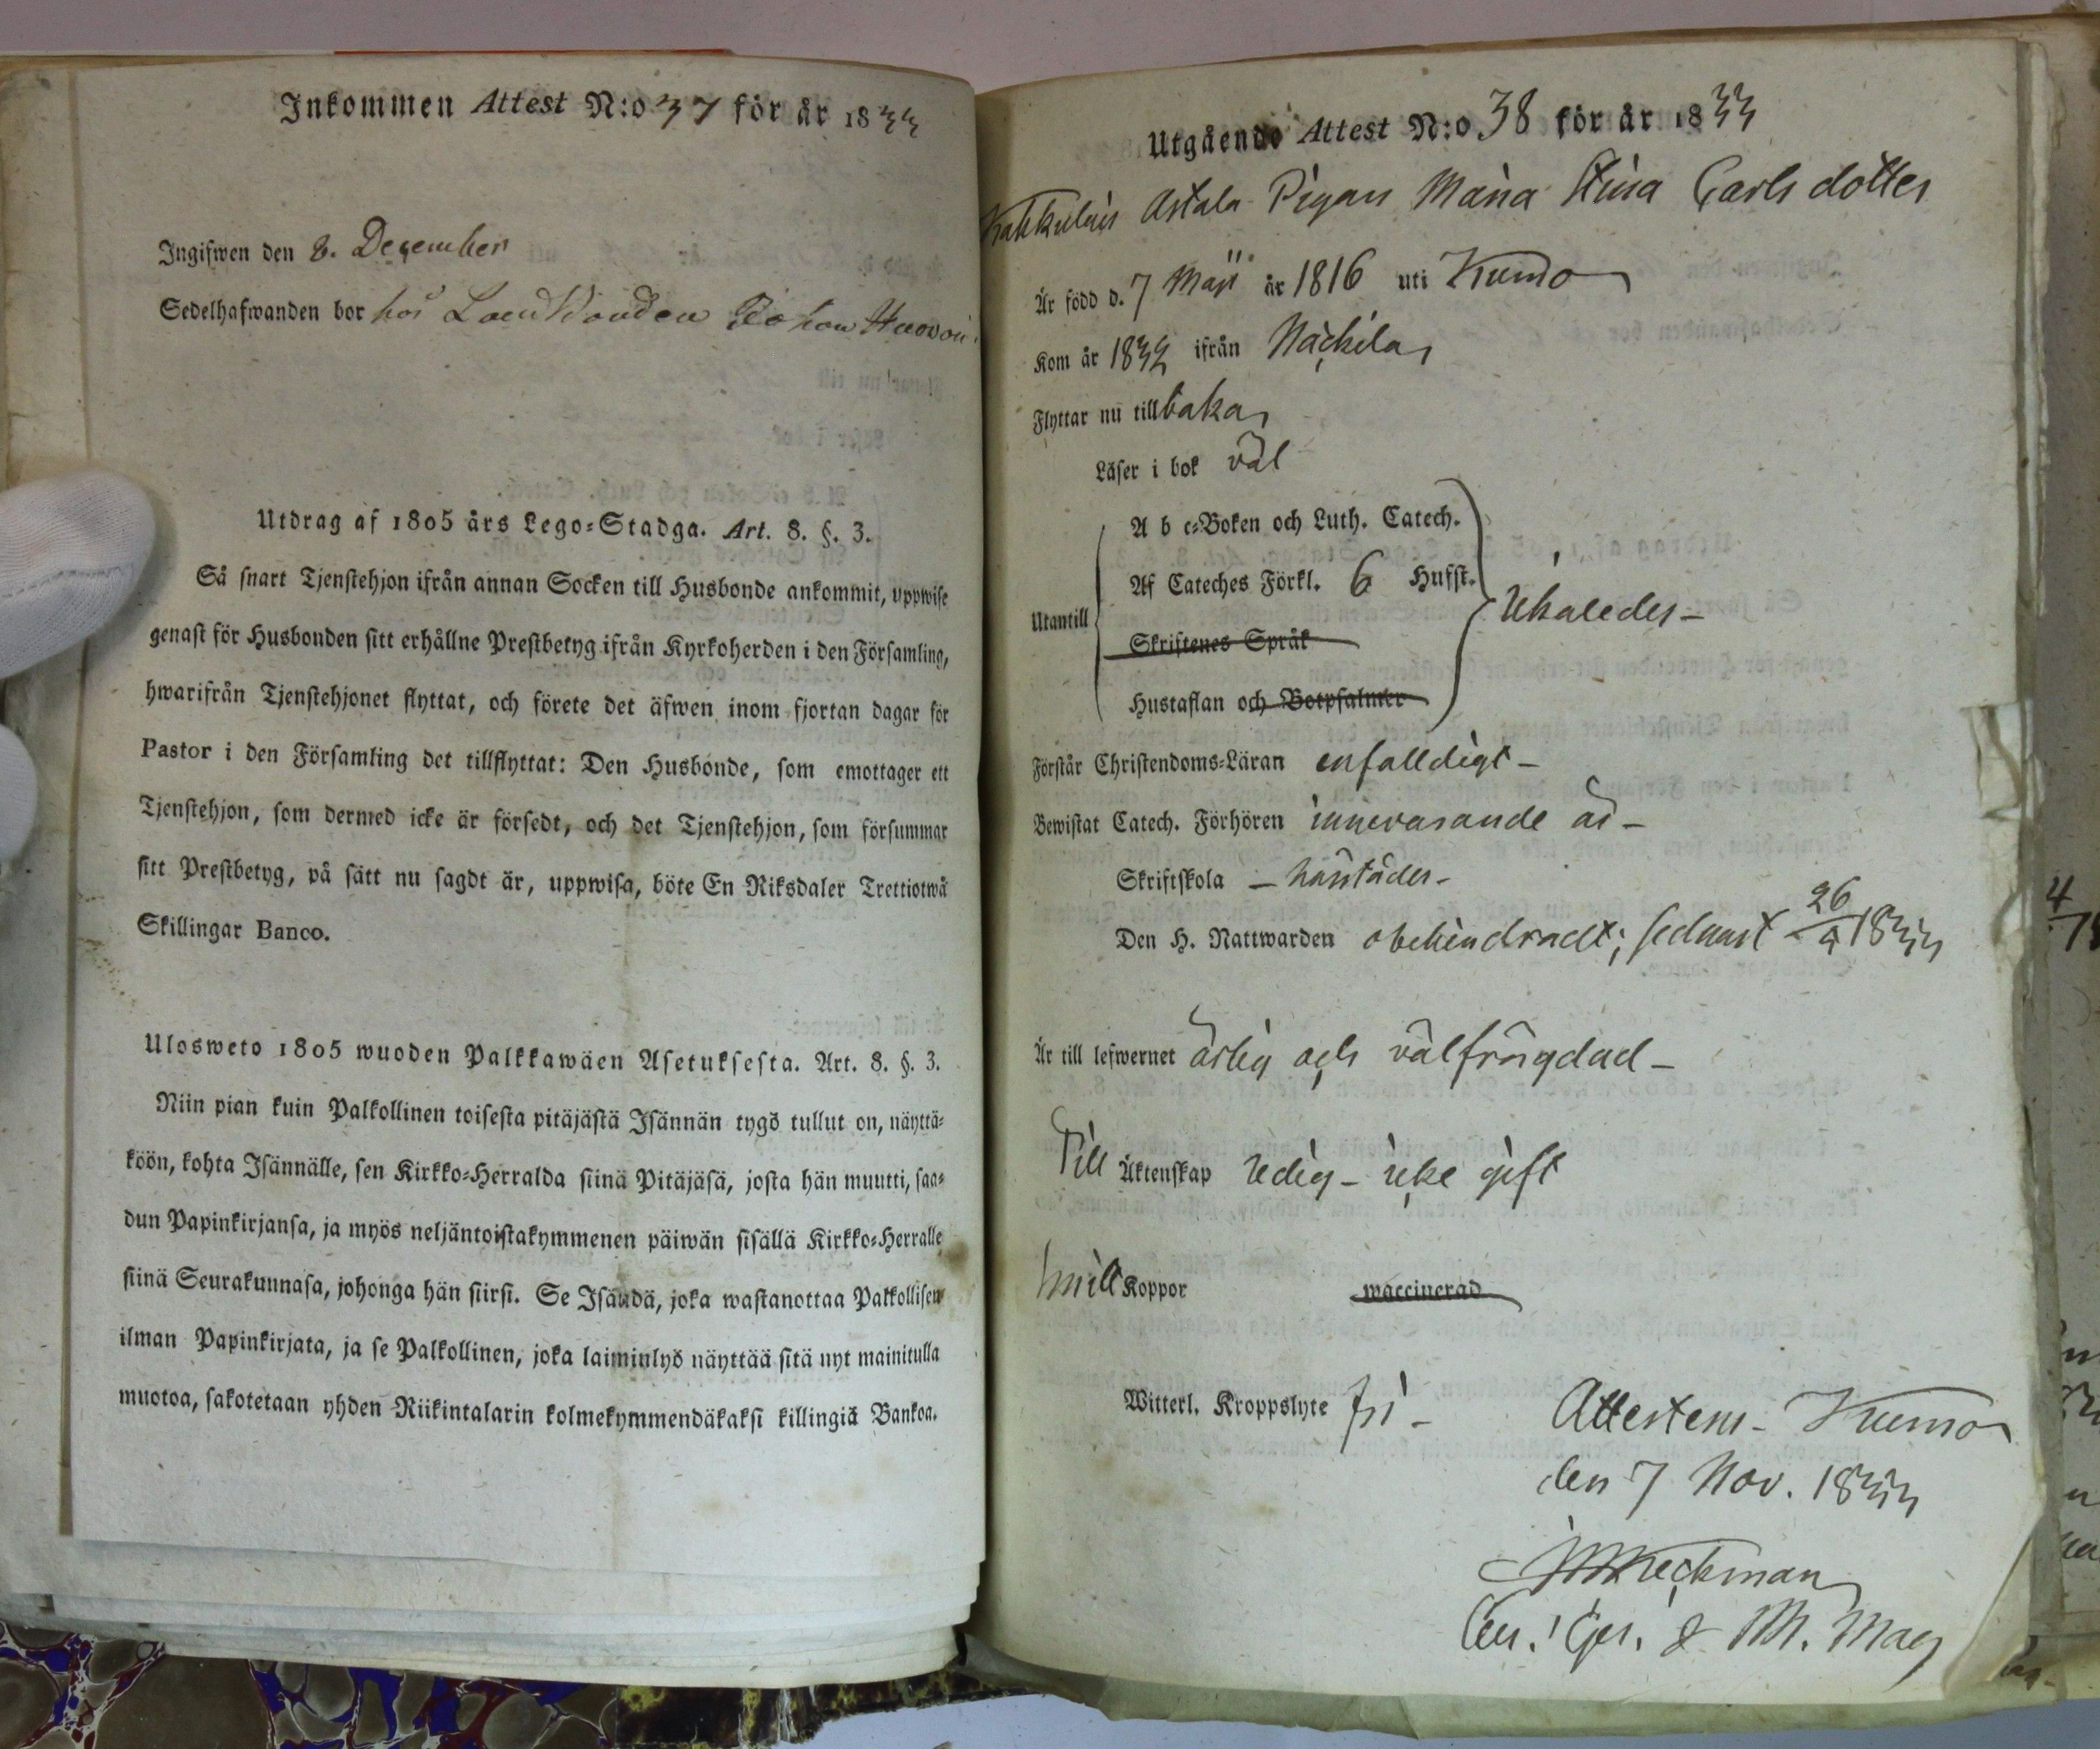 Inkommen Attest N:o 37 för år 1833
Ingifwen den 8. December
Sedelhafwanden bor hos Landbonden Johan
Utdrag af 1805 års Lego-Stadga. Art. 8. §. 3.
Så snart Tjenstehjon ifrån annan Socken till Husbonde ankommit, uppwise
genast för Husbonden sitt erhållne Prestbetyg ifrån Kyrkoherden i den Församling,
hwarifrån Tjenstehjonet flyttat, och förete det äfwen inom fjortan dagar för
Pastor i den Församling det tillflyttat: Den Husbonde, som emottager ett
Tjenstehjon, som dermed icke är försedt, och det Tjenstehjon, som försummar
sitt Prestbetyg, på sätt nu sagdt är, uppwisa, böte En Riksdaler Trettiotwå
Skillingar Banco.
Ulosweto 1805 wuoden Palkkawäen Asetuksesta. Art. 8. §. 3.
Niin pian kuin Palkollinen toisesta pitäjästä Isännän tygö tullut on, näyttä-
köön, kohta Isännälle, sen Kirkko-Herralda siinä Pitäjäsä, josta hän muutti, saa-
dun Papinkirjansa, ja myös neljäntoistakymmenen päiwän sisällä Kirkko-Herralle
siinä Seurakunnasa, johonga hän siirsi. Se Isändä, joka wastanottaa Palkollisen
ilman Papinkirjata, ja se Palkollinen, joka laiminlyö näyttää sitä nyt mainitulla
muotoa, sakotetaan yhden Riikintalarin kolmekymmendäkaksi killingiä Bankoa.
Utgående Attest N:o 38 för år 1833
Astala Pigan Maria Stina Carlsdotter
Är född d. 7 Maji år 1816 uti Kumo
Kom år 1832 ifrån Nackila
Flyttar nu tillbaka
Läser i bok väl
A b c-Boken och Luth. Catech.
Af Cateches Förkl. 6 Hufst.
Utantill
Skriftenes Språk
Likaledes -
Hustaflan och Botpsalmer
Förstår Christendoms-Läran enfalldigt -
Bewistat Catech. Förhören innevarande år -
Skriftskola - härstädes -
Den H. Nattwarden obehindradt; sednast 26/9 1833
Är till lefwernet ärlig och välfrägdad -
Till Äktenskap ledig - icke gift
haft Koppor waccinerad
Witterl. Kroppslyte fri -
Attesteras - Kumo
den 7 Nov. 1833